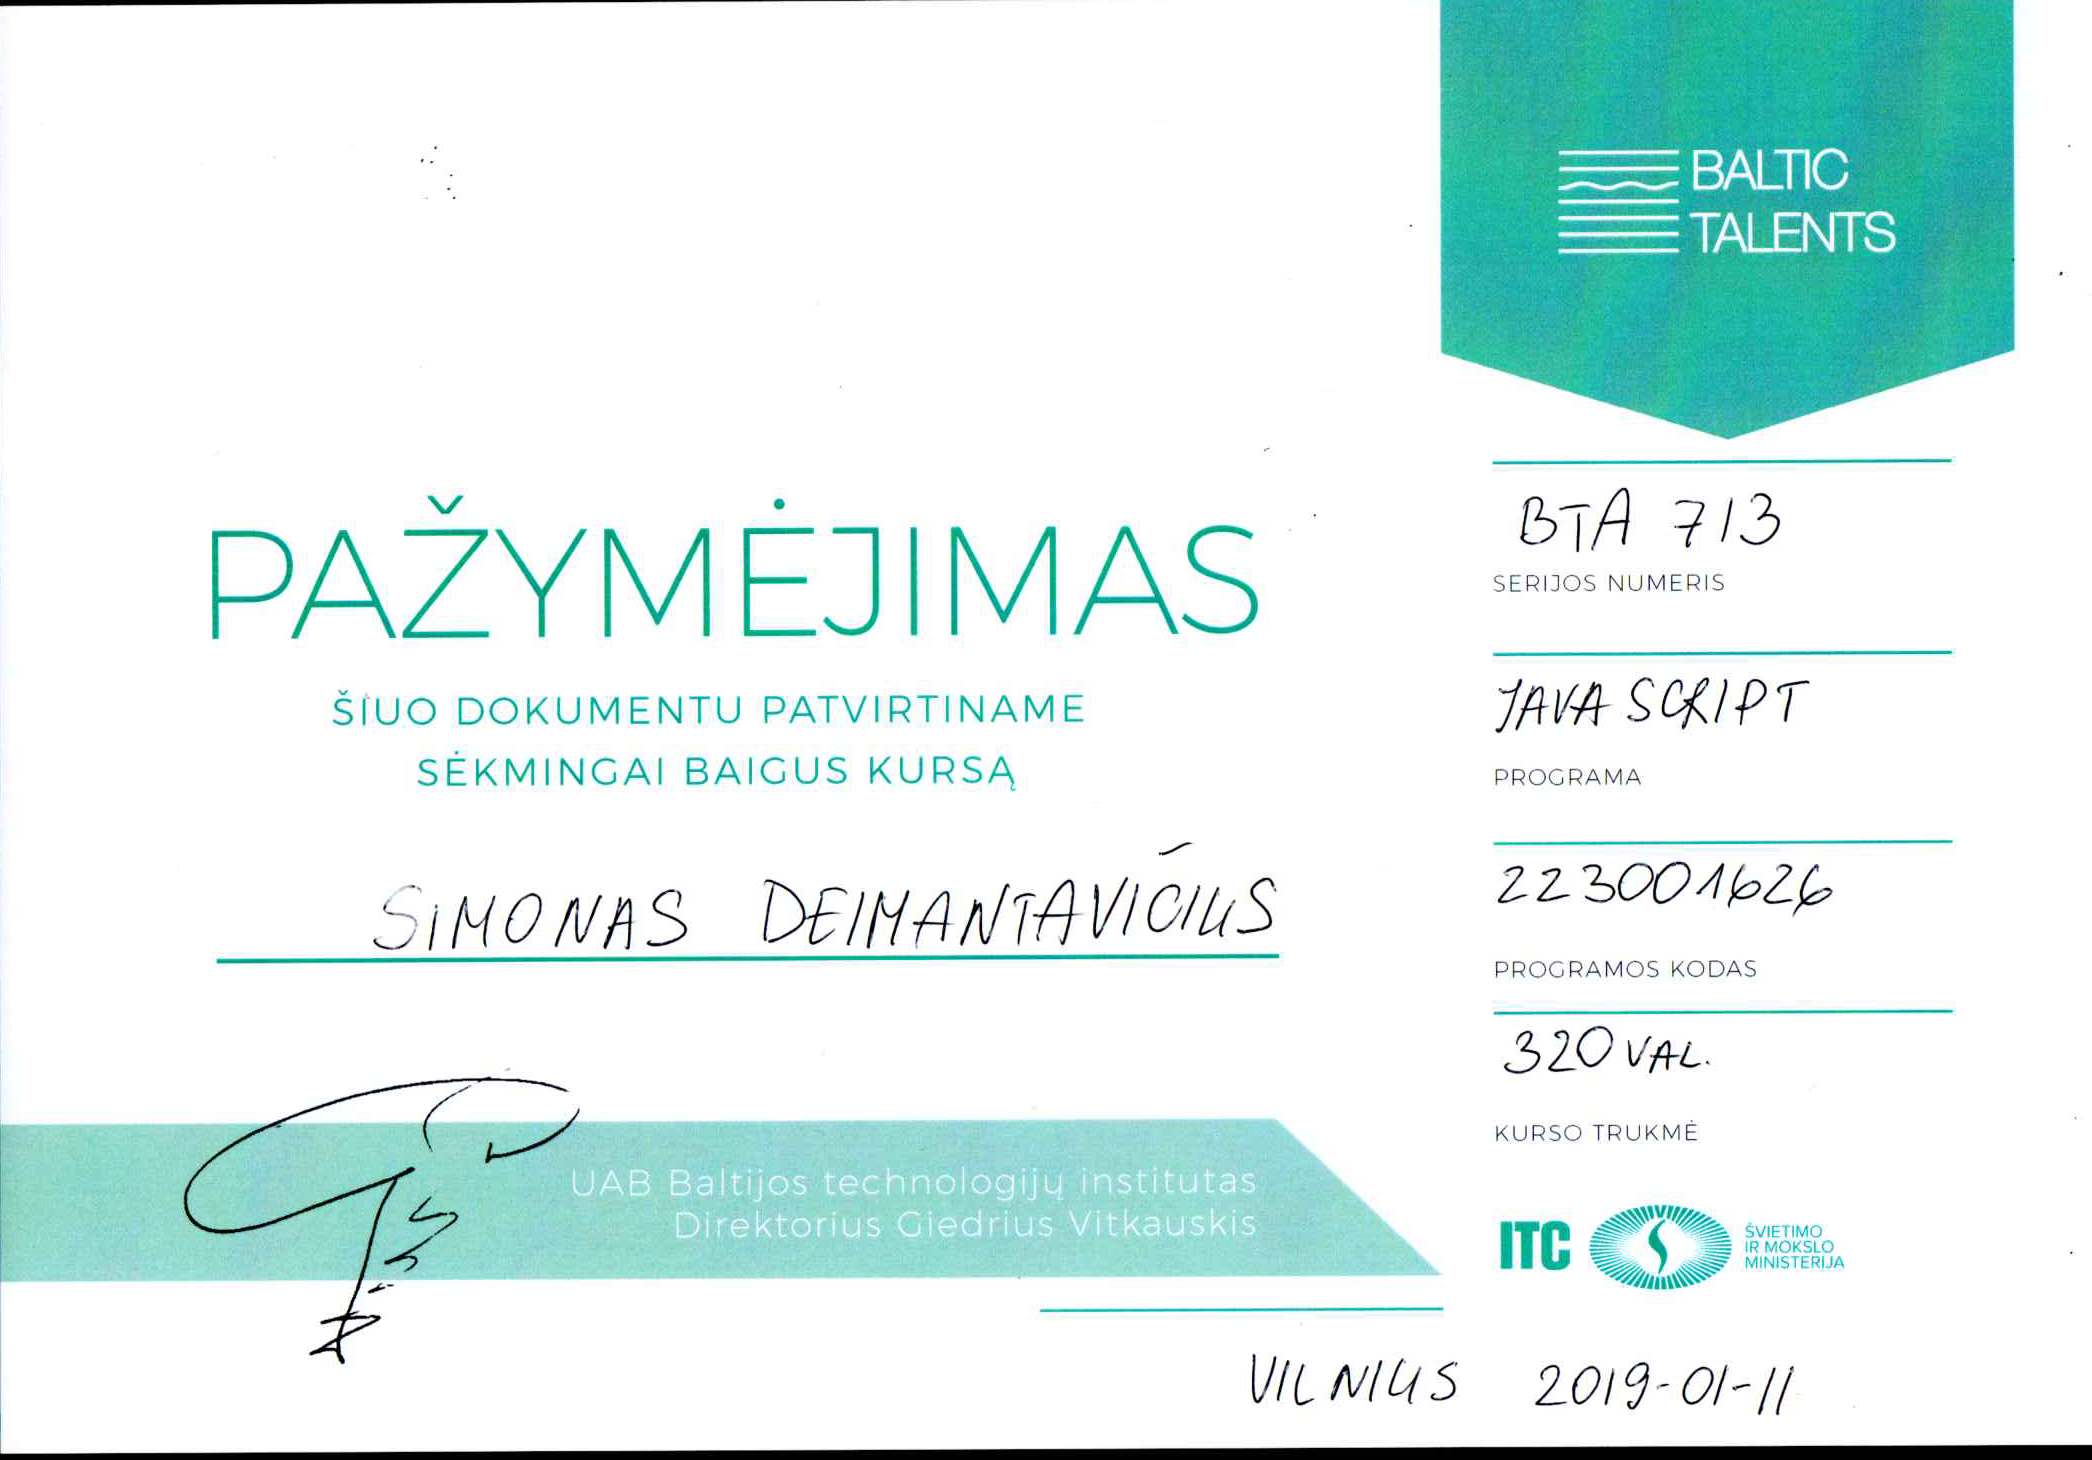 BALTIC
TALENTS
PAŽYMĖJIMAS
ŠIUO DOKUMENTU PATVIRTINAME
SĖKMINGAI BAIGUS KURSĄ
SIMONAS DEIMANTAVIČIUS
UAB Baltijos technologijų institutas
Direktorius Giedrius Vitkauskis
BTA 713
SERIJOS NUMERIS
JAVA SCRIPT
PROGRAMA
223001626
PROGRAMOS KODAS
320 VAL.
KURSO TRUKMĖ
ITC
ŠVIETIMO
IR MOKSLO
MINISTERIJA
VILNIUS 2019-01-11